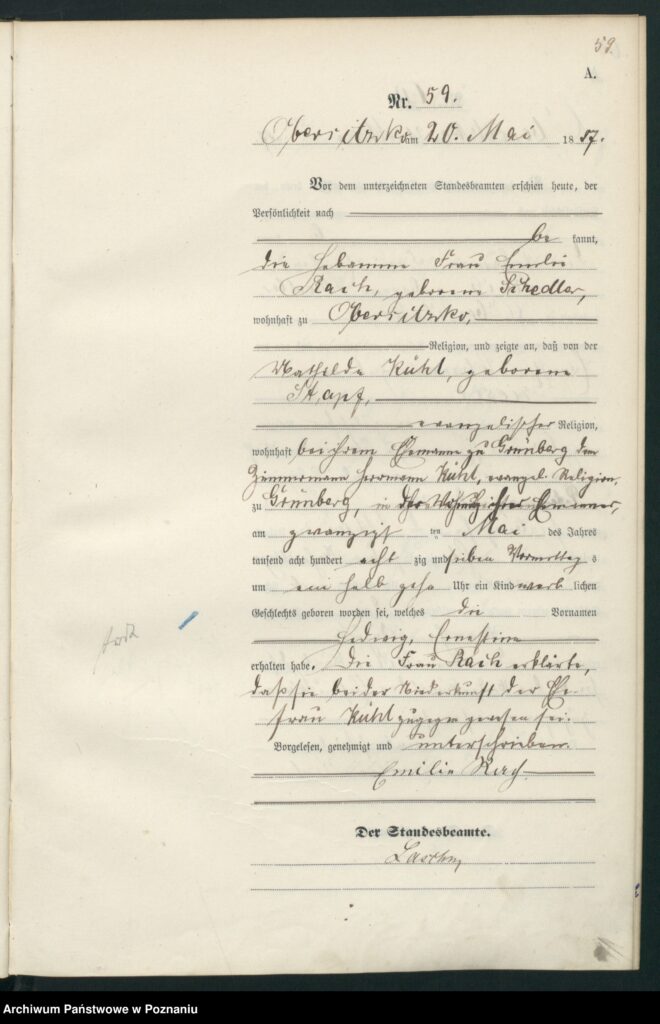 59.
A.
Nr. 59.
Obersitzko am 20. Mai 1887.
Vor dem unterzeichneten Standesbeamten erschien heute, der
Persönlichkeit nach
be kannt,
die Hebamme Frau Emilie
Rach, geborene Schedler,
wohnhaft zu Obersitzko,
Religion, und zeigte an, daß von der
Mathilde Kühl, geborene
Stapf,
evangelischer Religion,
wohnhaft bei ihrem Ehemanne zu Grünberg dem
Zimmermann Herrmann Kühl, evangel. Religion,
zu Grünberg, in der Wohnung ihres Ehemannes,
am zwanzigsten Mai des Jahres
tausend acht hundert acht zig und sieben Vormittags
um ein halb zehn Uhr ein Kind weib lichen
Geschlechts geboren worden sei, welches die Vornamen
Hedwig, Ernestine
erhalten habe. Die Frau Rach erklärte,
daß sie bei der Niederkunft der Ehe-
frau Kühl zugegen gewesen sei.
Vorgelesen, genehmigt und unterschrieben.
Emilie Rach
Der Standesbeamte.
Archiwum Państwowe w Poznaniu